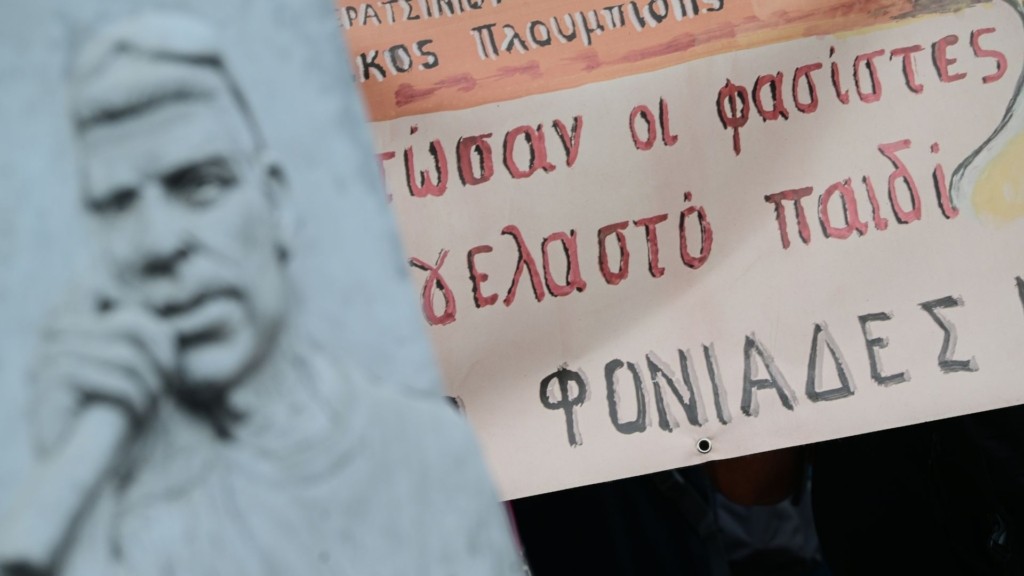 ΕΡΑΤΣΙΝΙΟΥ
κος Πλουμπίδης
τώσαν οι φασίστες
γελαστό παιδί
ΦΟΝΙΑΔΕΣ